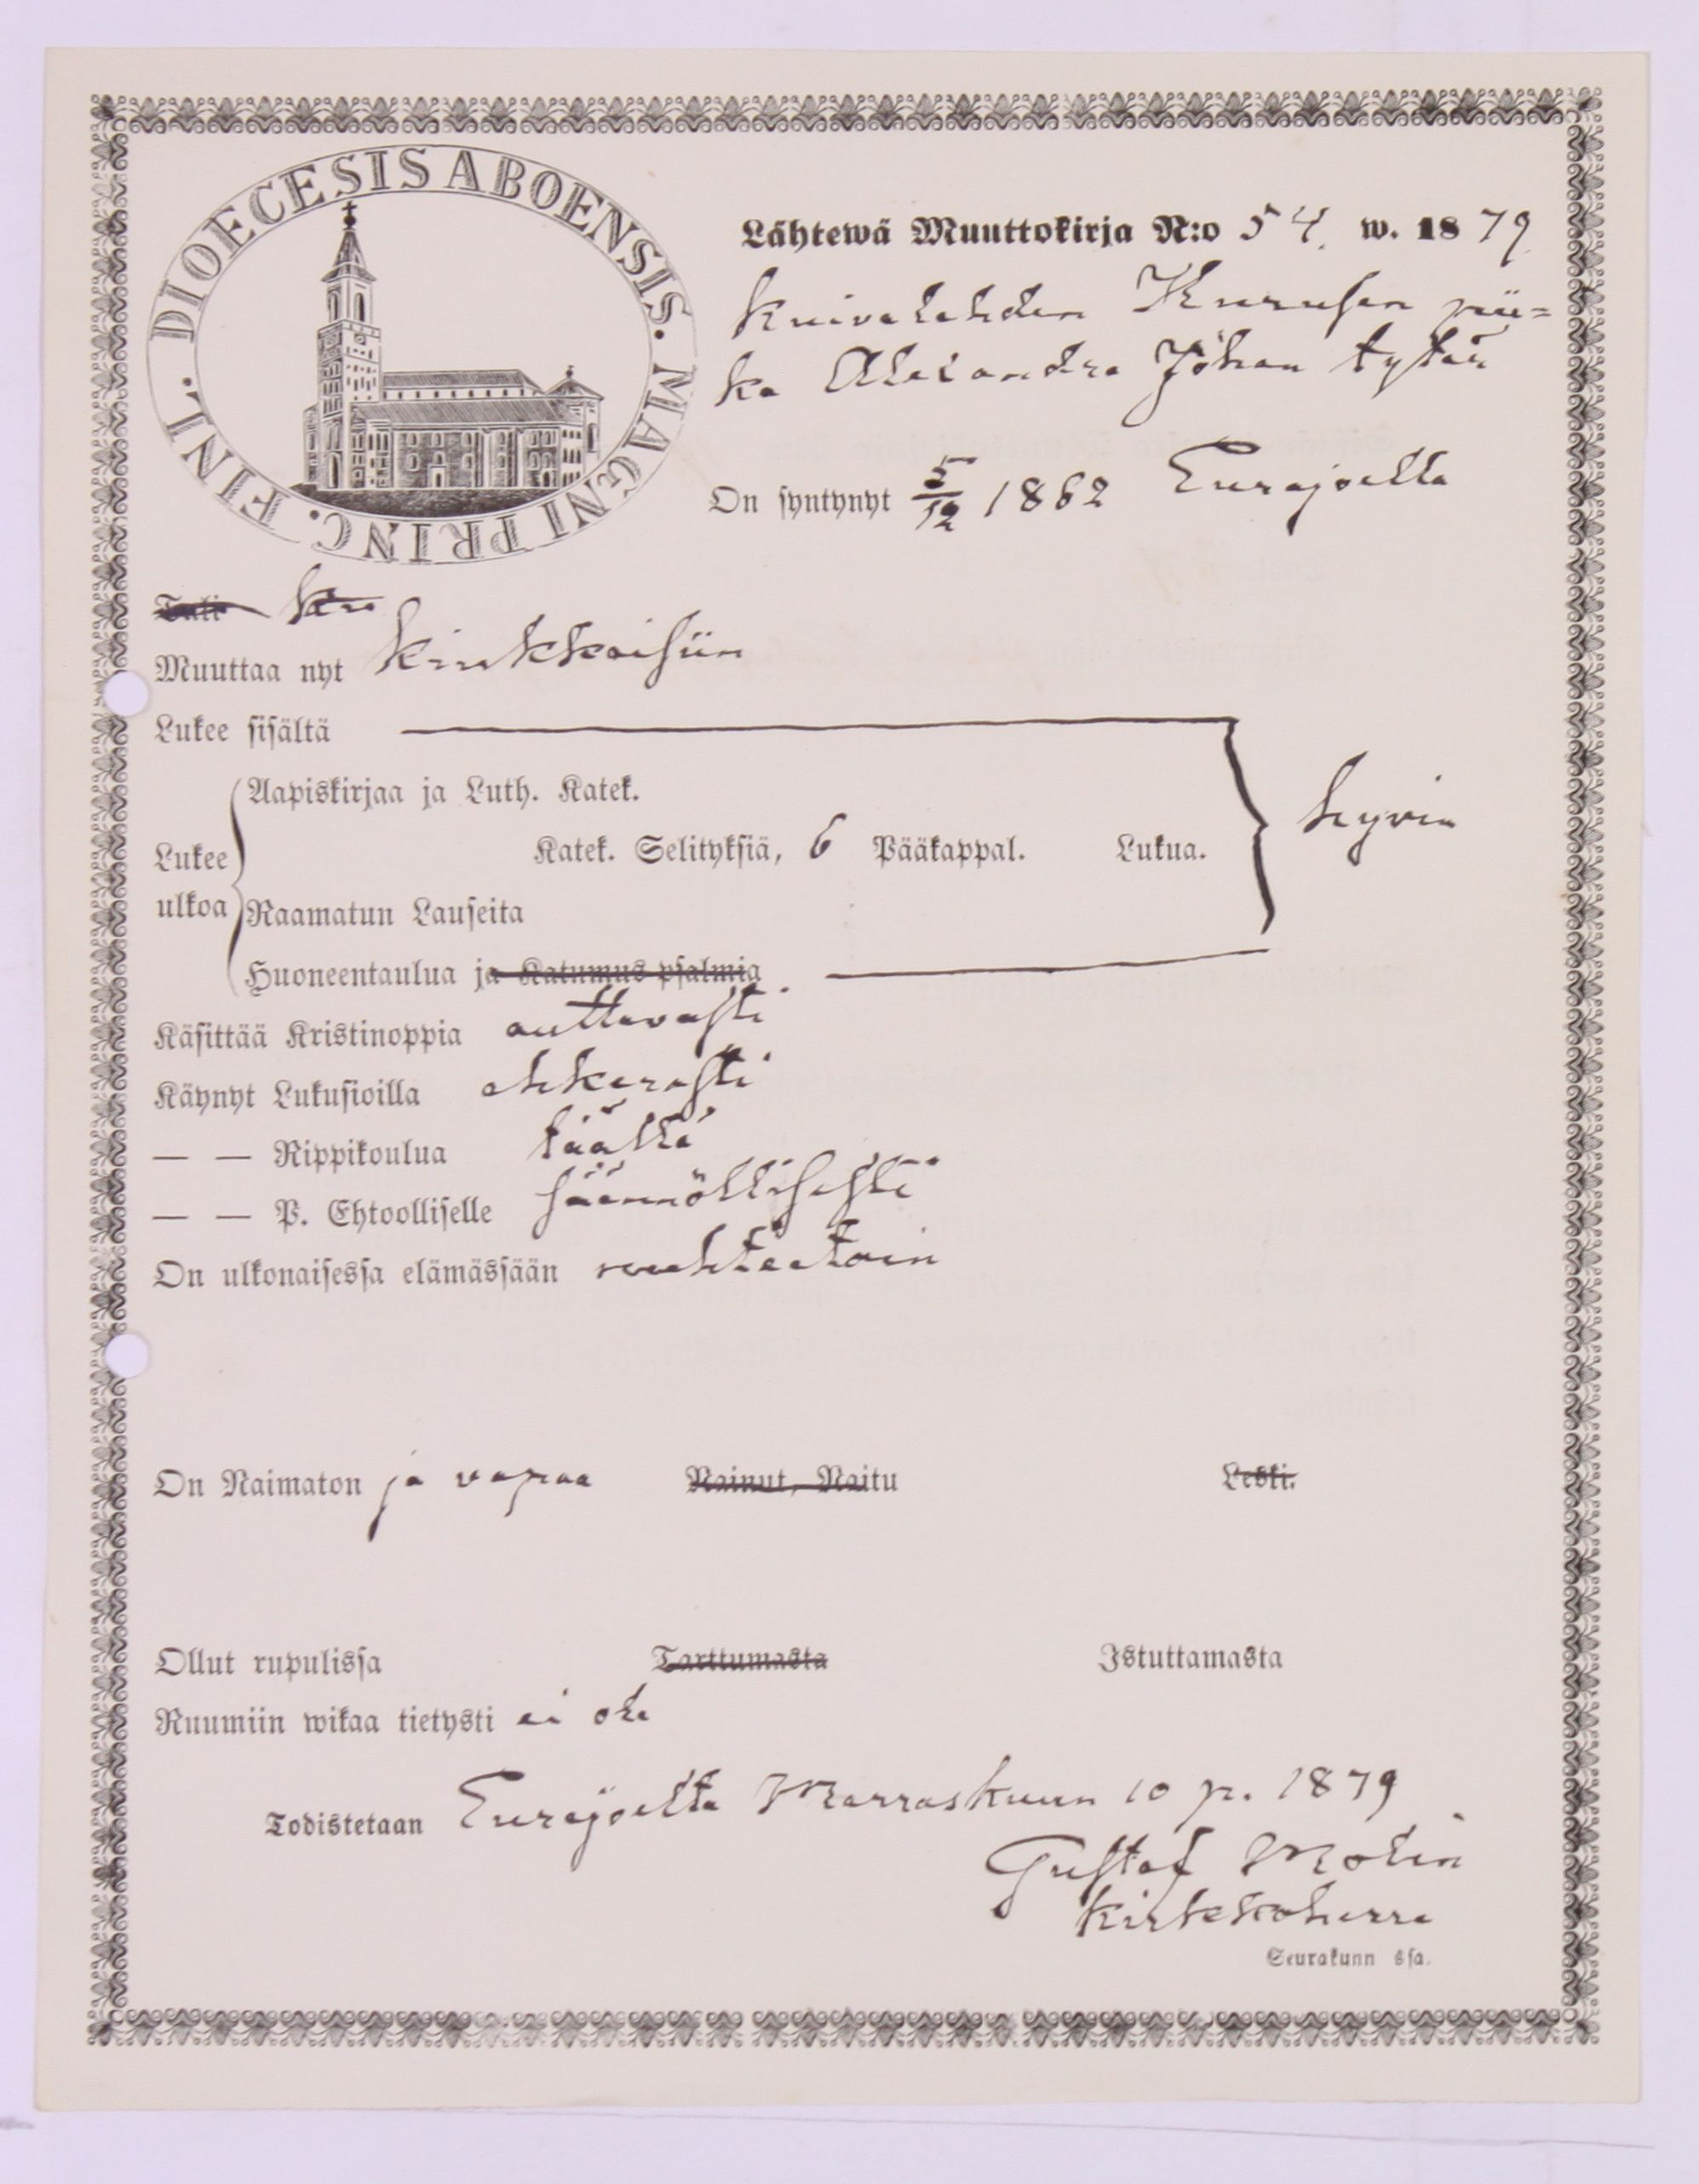 DIOECESIS ABOENSIS. MAGNI PRINC. FINL.
Lähtewä Muuttokirja N:o 54. w. 1879
Kuivalahden Kuusen pii=
ka Alexandra Johan tytär
On syntynyt 5/12 1862 Eurajoella
Tuli
Muuttaa nyt Kiukkoisiin
Lukee sisältä
Aapiskirjaa ja Luth. Katek.
Lukee ulkoa
Katek. Selityksiä, 6 Pääkappal. Lukua.
hyvin
Raamatun Lauseita
Huoneentaulua ja Katumus psalmia
Käsittää Kristinoppia auttavasti
Käynyt Lukusioilla ahkerasti
— — Rippikoulua täällä
— — P. Ehtoolliselle säännöllisesti
On ulkonaisessa elämässään nuhteetoin
On Naimaton ja vapaa Nainut, Naitu Leski.
Ollut rupulissa Tarttumasta Istuttamasta
Ruumiin wikaa tietysti ei ole
Todistetaan Eurajoella Marraskuun 10 p. 1879
Gustaf Molin
Kirkkoherra
Seurakunn ssa.